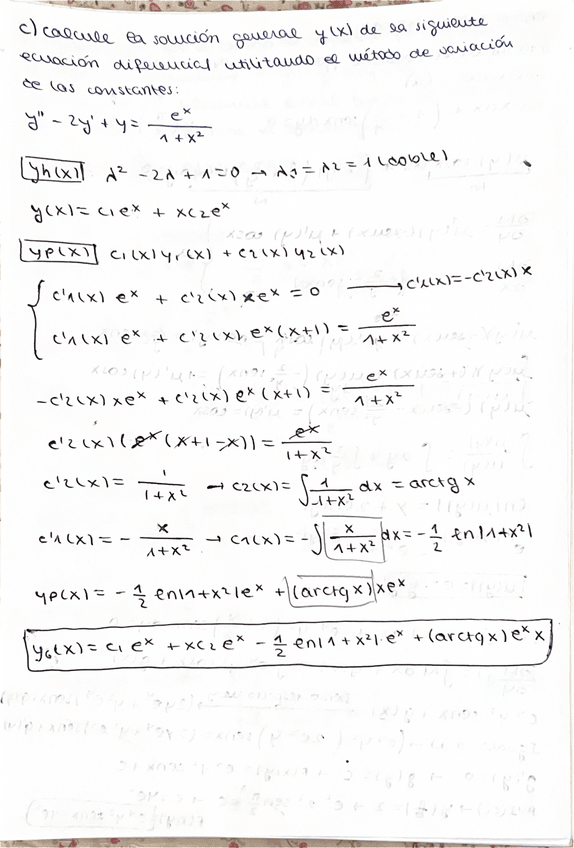 c) calcule la solución general y(x) de la siguiente
ecuación diferencial utilitando el método de variación
de las constantes:
y'' - 2y' + y = e^x / (1 + x²)
yh(x) λ² - 2λ + 1 = 0 → λ1 = λ2 = 1 (doble)
y(x) = c1 e^x + x c2 e^x
yp(x) c1(x) y1(x) + c2(x) y2(x)
c'1(x) e^x + c'2(x) x e^x = 0 → c'1(x) = -c'2(x) x
c'1(x) e^x + c'2(x) e^x (x+1) = e^x / (1 + x²)
-c'2(x) x e^x + c'2(x) e^x (x+1) = e^x / (1 + x²)
c'2(x) (e^x (x+1-x)) = e^x / (1 + x²)
c'2(x) = 1 / (1 + x²) → c2(x) = ∫ 1 / (1 + x²) dx = arctg x
c'1(x) = - x / (1 + x²) → c1(x) = -∫ x / (1 + x²) dx = - 1/2 ln|1+x²|
yp(x) = - 1/2 ln|1+x²| e^x + (arctg x) x e^x
yG(x) = c1 e^x + x c2 e^x - 1/2 ln|1 + x²| · e^x + (arctg x) e^x x